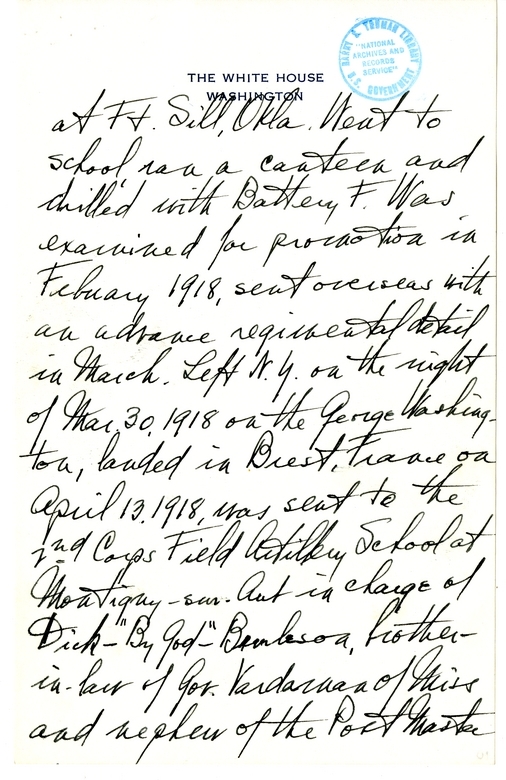 HARRY S. TRUMAN LIBRARY
"NATIONAL
ARCHIVES AND
RECORDS
SERVICE"
U.S. GOVERNMENT
THE WHITE HOUSE
WASHINGTON
at Ft. Sill, Okla. Went to
school ran a canteen and
drilled with Battery F. Was
examined for promotion in
Febuary 1918, sent overseas with
an advance regimental detail
in March. Left N.Y. on the night
of Mar. 30, 1918 on the George Washing-
ton, landed in Brest, France on
April 13, 1918, was sent to the
2nd Corps Field Artillery School at
Montigny-sur-Aut in charge of
Dick-"By God-" Burleson, brother-
in-law of Gov. Vardaman of Miss
and nephew of the Post Master